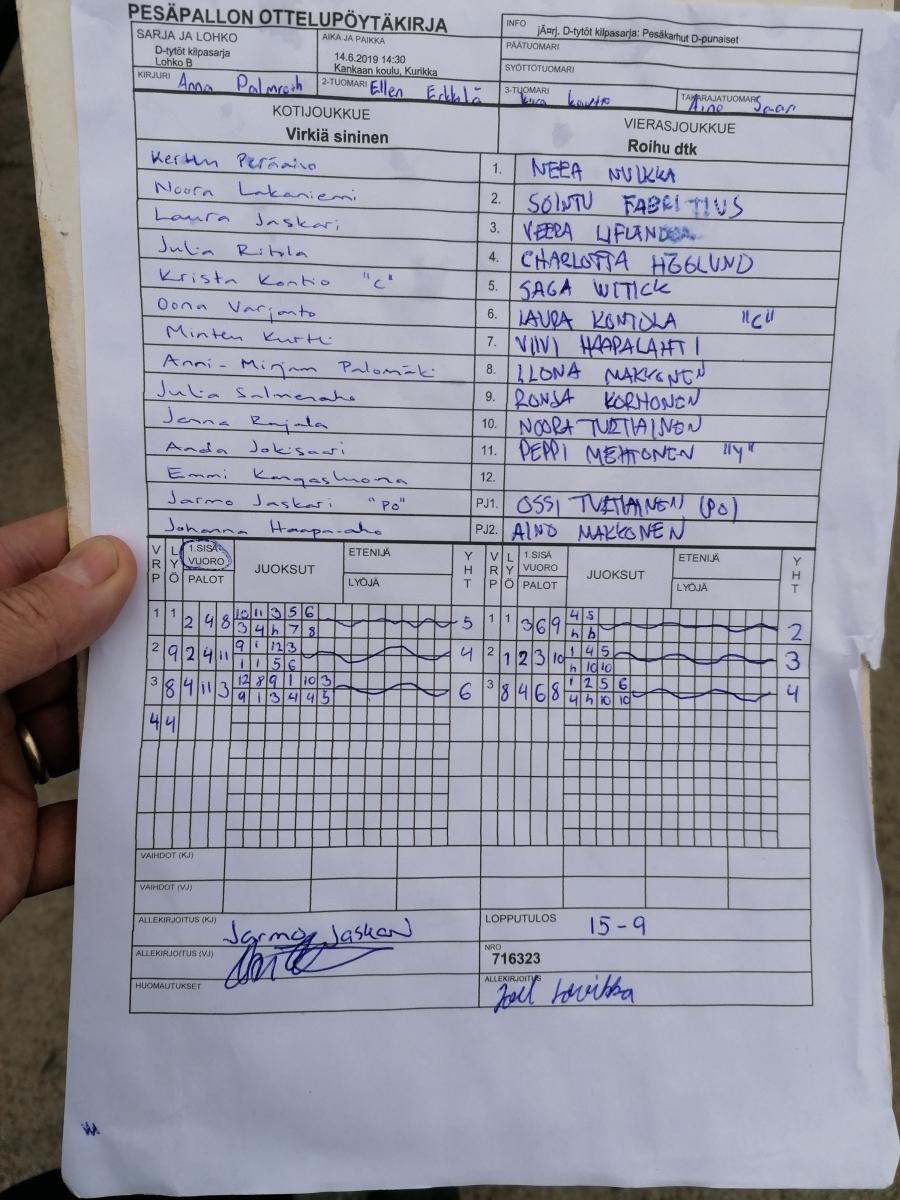 PESÄPALLON OTTELUPÖYTÄKIRJA
SARJA JA LOHKO
D-tytöt kilpasarja
Lohko B
AIKA JA PAIKKA
14.6.2019 14:30
Kankaan koulu, Kurikka
INFO
jÃ¤rj. D-tytöt kilpasarja: Pesäkarhut D-punaiset
PÄÄTUOMARI
SYÖTTÖTUOMARI
KIRJURI Anna Palmroth
2-TUOMARI Ellen Erkkilä
3-TUOMARI
TAKARAJATUOMARI Aino Saari
KOTIJOUKKUE
Virkiä sininen
VIERASJOUKKUE
Roihu dtk
Kerttu 1. NEEA NULKKA
Noora Lakaniemi 2. SOINTU FABRITIUS
Laura Jaskari 3. VEERA
Julia Ritola 4. CHARLOTTA HÖGLUND
Krista Kontio "C" 5. SAGA WITICK
Oona Varjanto 6. LAURA KONTOLA "C"
Minten Kurtti 7. VIIVI HAAPALAHTI
Anni-Mirjam Palomäki 8. ILONA MAKKONEN
Julia Salmenaho 9. RONJA KORHONEN
Jenna Rajala 10. NOORA TURTIAINEN
Anda Jokisaari 11. PEPPI MEHTONEN "Y"
Emmi Kangasluoma 12.
Jarmo Jaskari "PO" PJ1. OSSI TURTIAINEN (PO)
Johanna Haapa-aho PJ2. AINO MAKKONEN
VRP LYÖ 1.SISÄ VUORO PALOT JUOKSUT ETENIJÄ LYÖJÄ YHT VRP LYÖ 1.SISÄ VUORO PALOT JUOKSUT ETENIJÄ LYÖJÄ YHT
1 1 2 4 8 10 11 3 5 6 5 1 1 3 6 9 4 5 2
3 4 h 7 8 h h
2 9 2 4 11 9 1 12 3 4 2 1 2 3 10 1 4 5 3
1 1 5 6 h 10 10
3 8 4 11 3 12 8 9 1 10 3 6 3 8 4 6 8 1 2 5 6 4
9 1 3 4 4 5 4 h 10 10
4 4
VAIHDOT (KJ)
VAIHDOT (VJ)
ALLEKIRJOITUS (KJ) Jarmo Jaskari
LOPPUTULOS 15-9
ALLEKIRJOITUS (VJ)
NRO
716323
HUOMAUTUKSET
ALLEKIRJOITUS